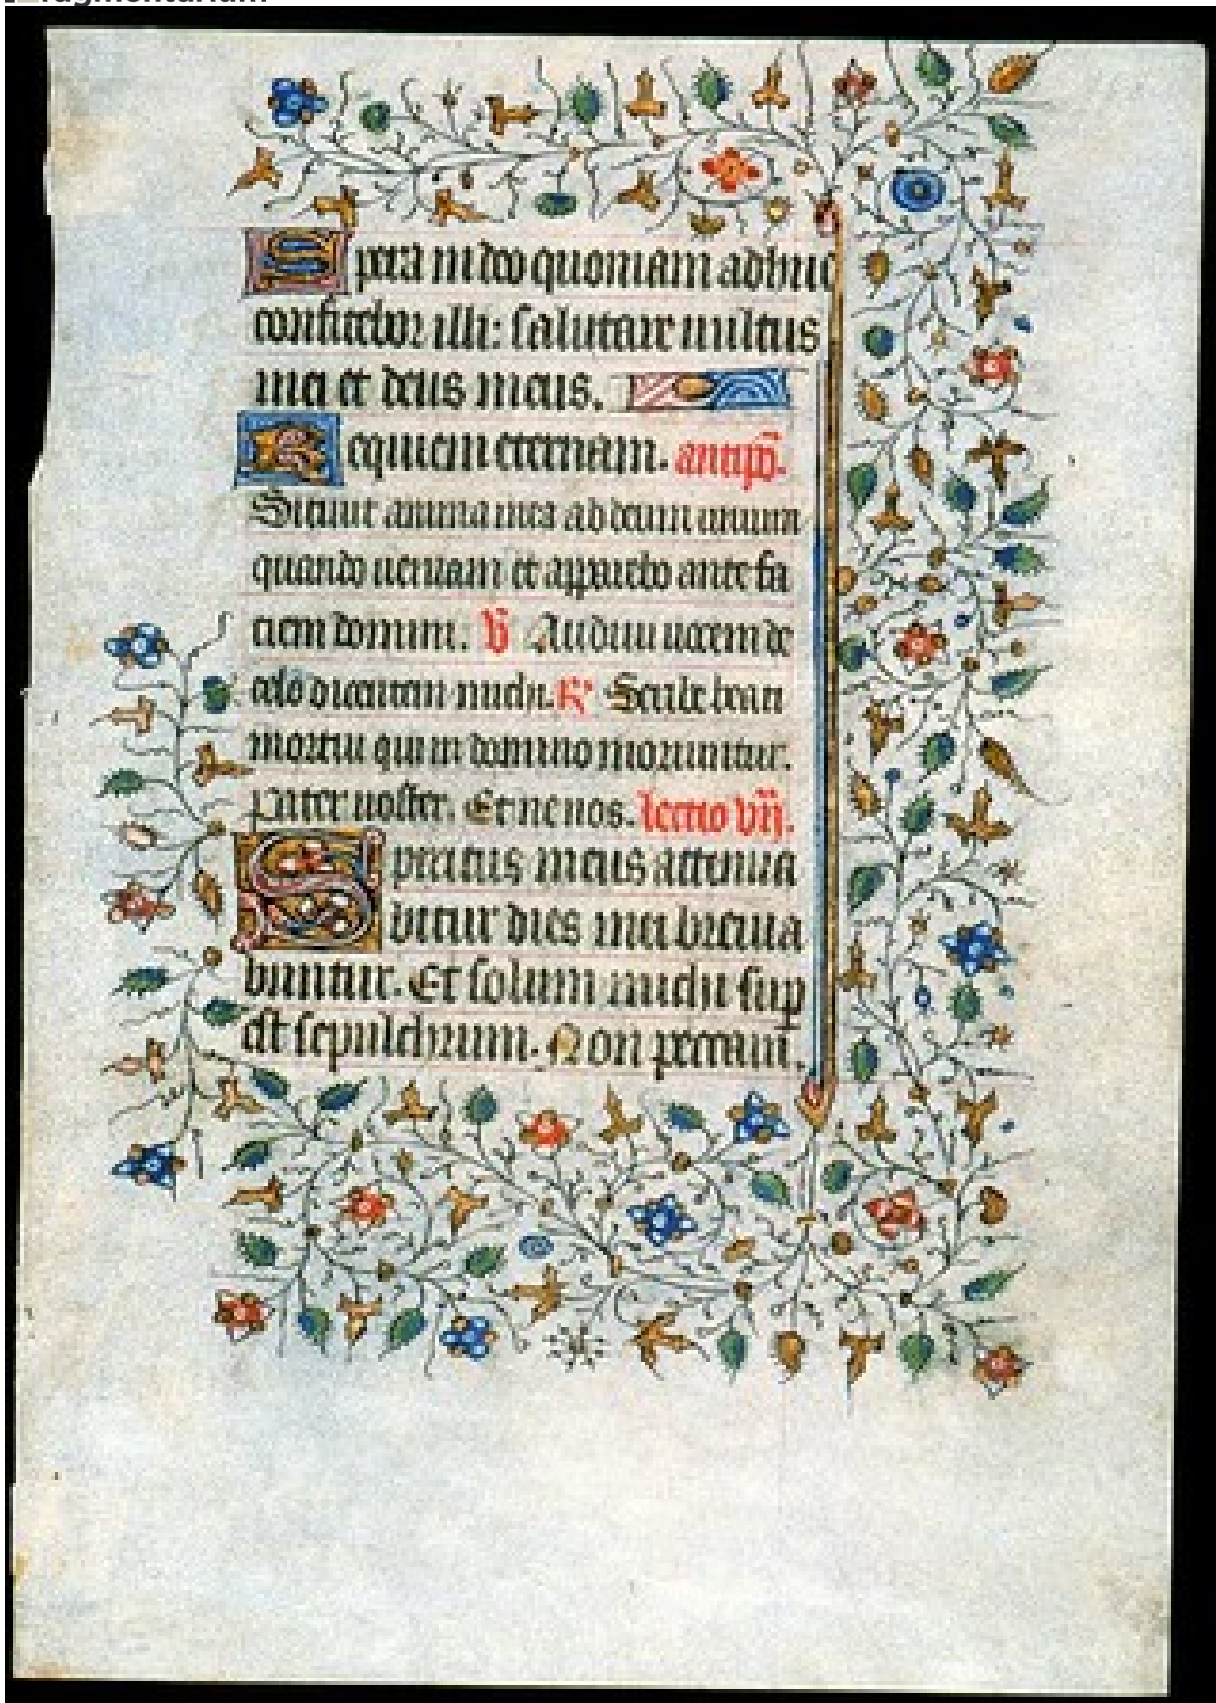 Spera in deo quoniam adhuc
confitebor illi: salutare uultus
mei et deus meus.
Requiem eternam. antiph̄.
Sitiuit anima mea ad deum uiuum
quando ueniam et apparebo ante fa
ciem domini. V̄ Audiui uocem de
celo dicentem michi. R̛ Beati
mortui qui in domino moriuntur.
Pater noster. Et ne nos. lectio vij.
Spiritus meus attenua
bitur dies mei breuia
buntur. Et solum michi sup
est sepulchrum. Non peccaui.